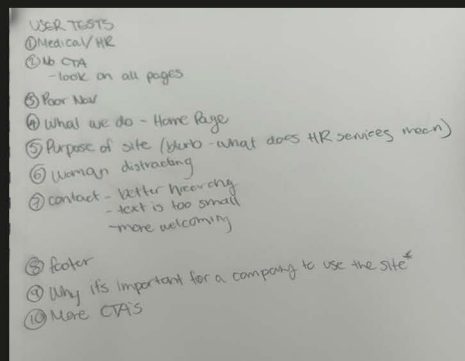 USER TESTS
① Medical/HR
② No CTA
- look on all pages
③ Poor Nav
④ What we do - Home Page
⑤ Purpose of site (blurb - what does HR services mean)
⑥ Woman distracting
⑦ contact - better hierarchy
- text is too small
- more welcoming
⑧ footer
⑨ Why it's important for a company to use the site*
⑩ More CTA's